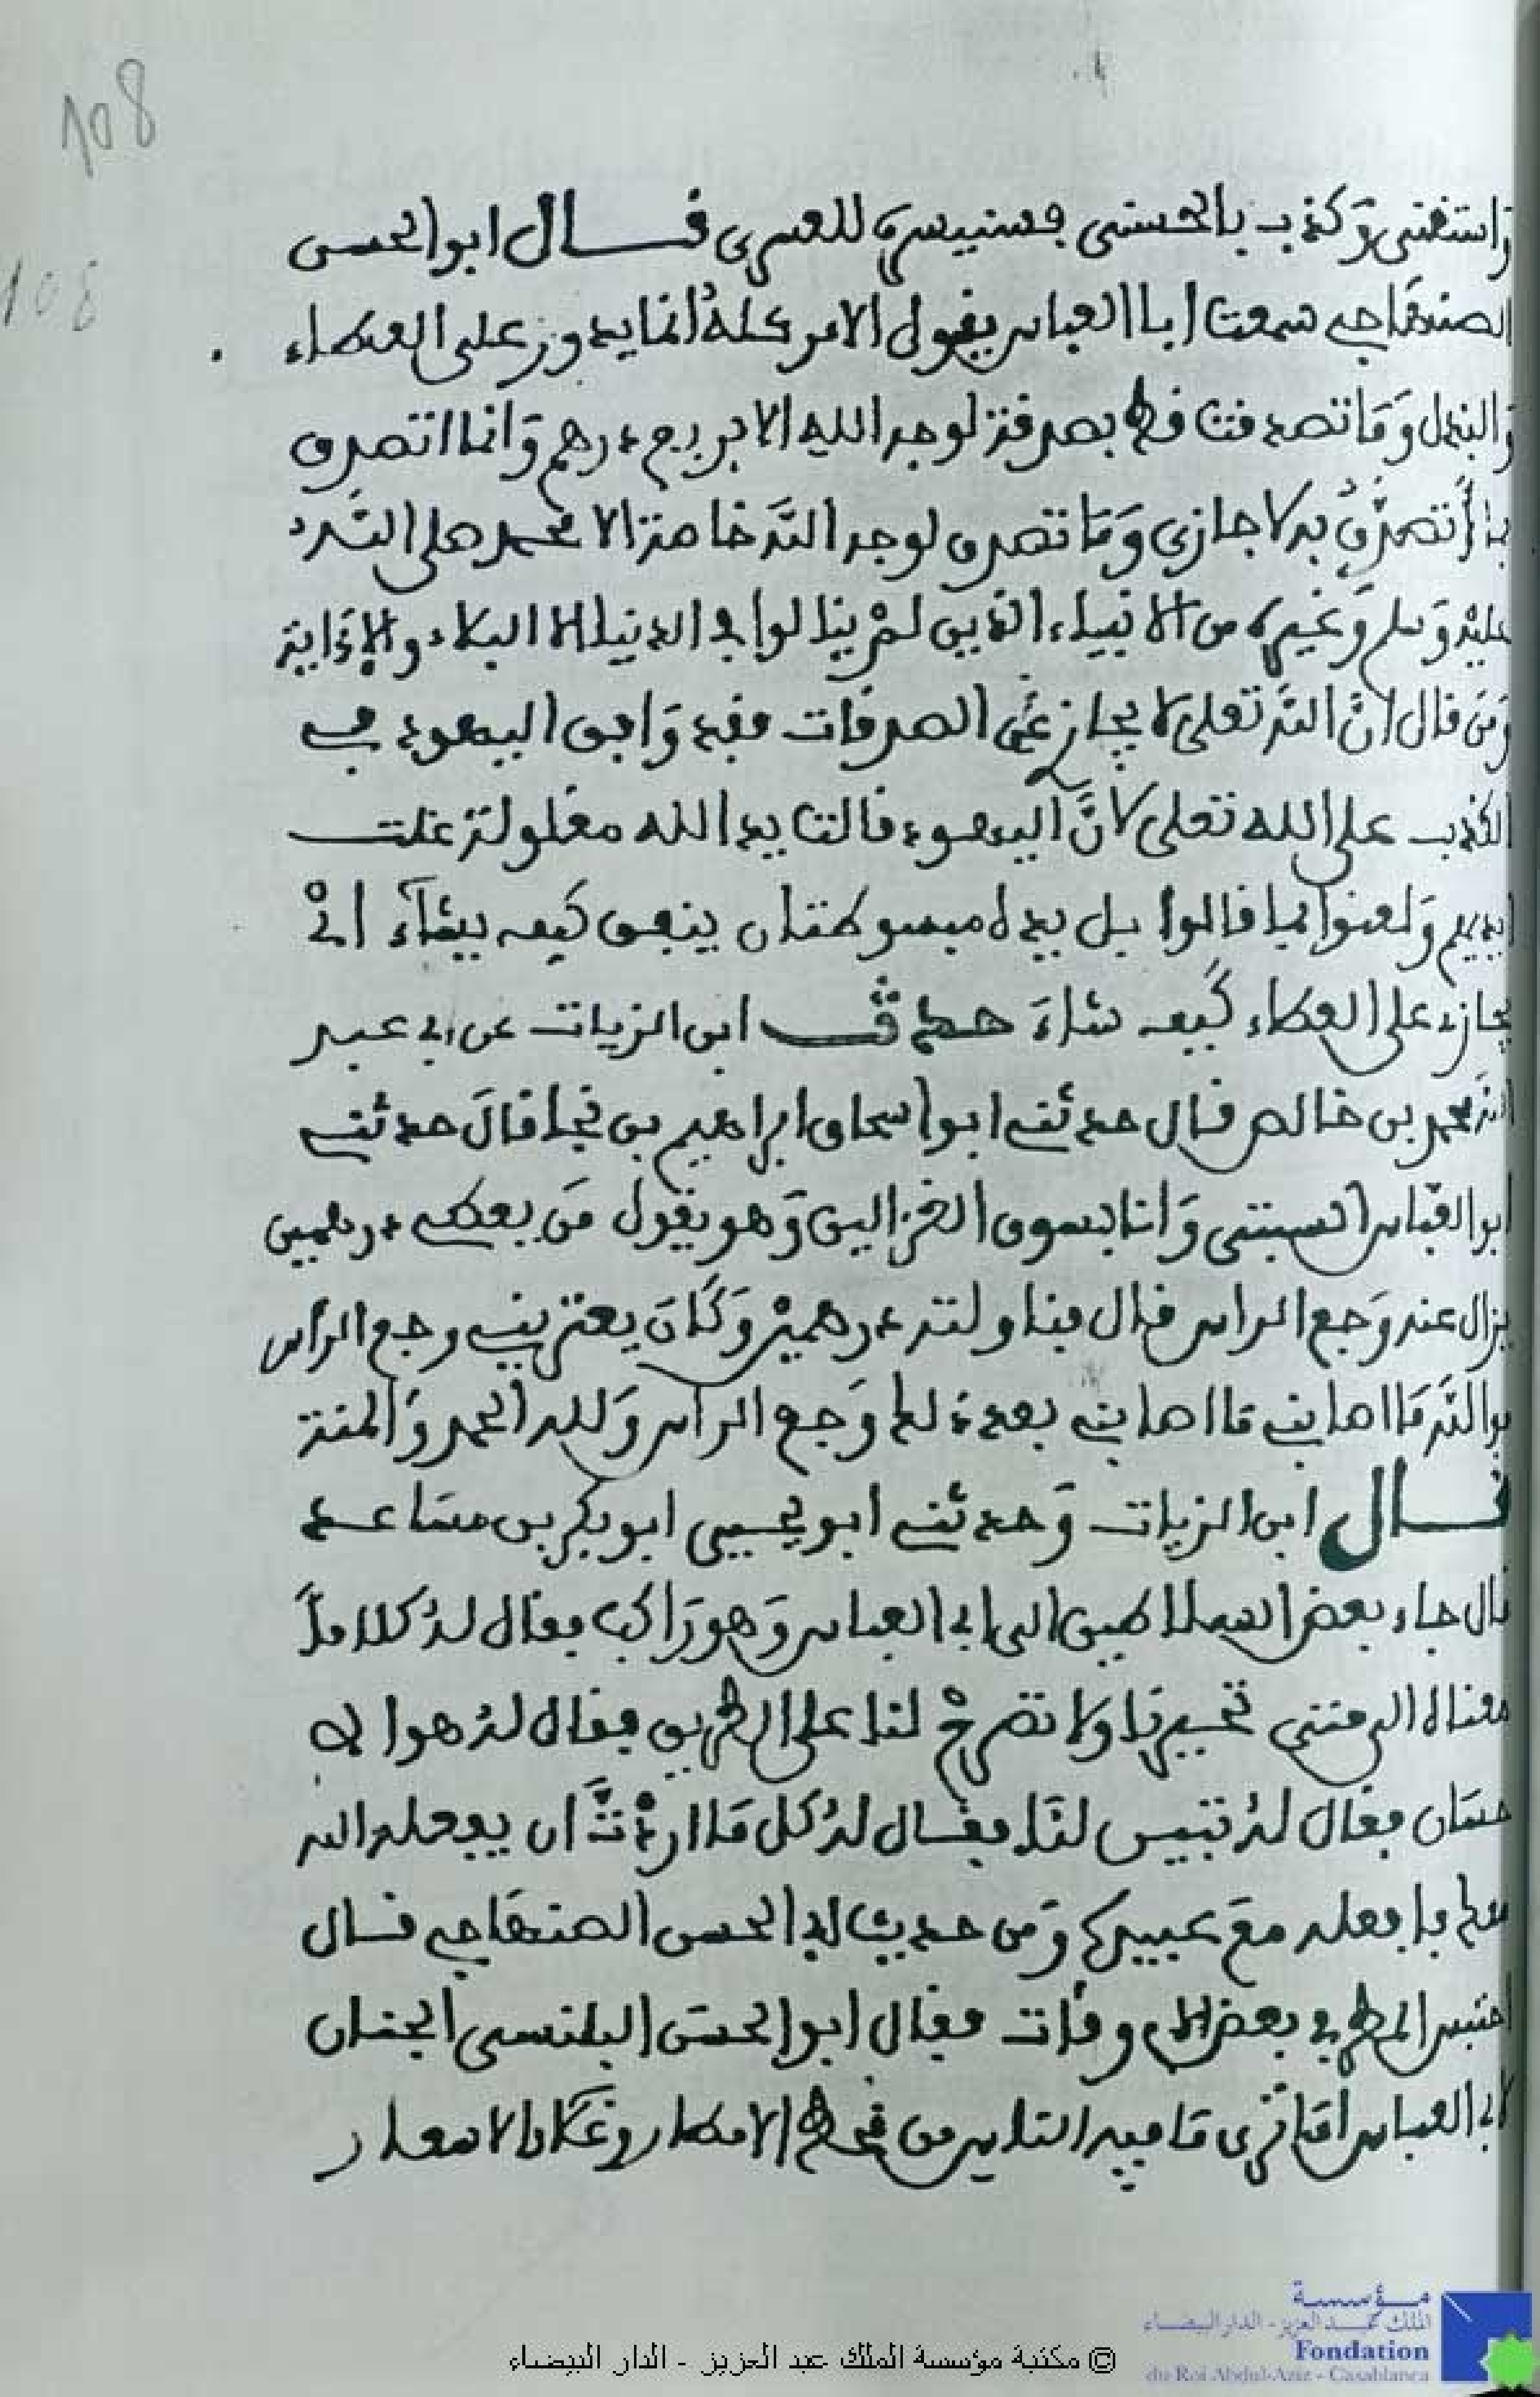 108
108
واستغنى وكذب بالحسنى فسنيسره للعسرى قال ابو الحسن
الصنهاجي سمعت ابا العباس يقول الامر كله انما يدور على العطاء
والبخل وما تصدقت قط بصدقة لوجه الله الا بربع درهم وانما اتصدق
بما أتصدق به لاجازى وما تصدق لوجه الله خاصة الا محمد صلى الله
عليه وسلم وغيره من الانبياء الذين لم ينالوا في الدنيا الا البلاء والإذاية
ومن قال ان الله تعلى لا يجاز على الصدقات فقد وافق اليهود في
الكذب على الله تعلى لان اليهود قالت يد الله مغلولة غلت
ايديهم ولعنوا بما قالوا بل يداه مبسوطتان ينفق كيف يشآء اي
يجازي على العطاء كيف شاء حدث ابن الزيات عن ابي عبد
الله محمد بن خالص قال حدثني ابو اسحاق ابراهيم بن قال حدثني
ابو العباس السبتي وانا بسوق الغزالين وهو يقول من يعطي درهمين
يزال عنه وجع الراس قال فناولته درهمين وكان يعتريني وجع الراس
فوالله ما اصابني ما اصابني بعده قط وجع الراس ولله الحمد والمنة
قال ابن الزيات وحدثني ابو يحيى ابو بكر بن مساعد
قال جاء بعض السلاطين الى ابي العباس وهو راكب فقال له كلاما
معناه الى متى تحيرنا ولا تصرح لنا على الطريق فقال له هوا لا
حسان فقال له تبين لنا فقال له كل ما اردت ان يفعله الله
معك فافعله مع عبيده ومن حديث ابي الحسن الصنهاجي قال
احتبس المطر في بعض الاوقات فقال ابو الحسن البلنسي الجنان
لابي العباس اما ترى ما فيه الناس من قحط الامطار وغلاء الاسعار
© مكتبة مؤسسة الملك عبد العزيز - الدار البيضاء
مؤسسة
الملك عبد العزيز - الدار البيضاء
Fondation
du Roi Abdul-Aziz - Casablanca